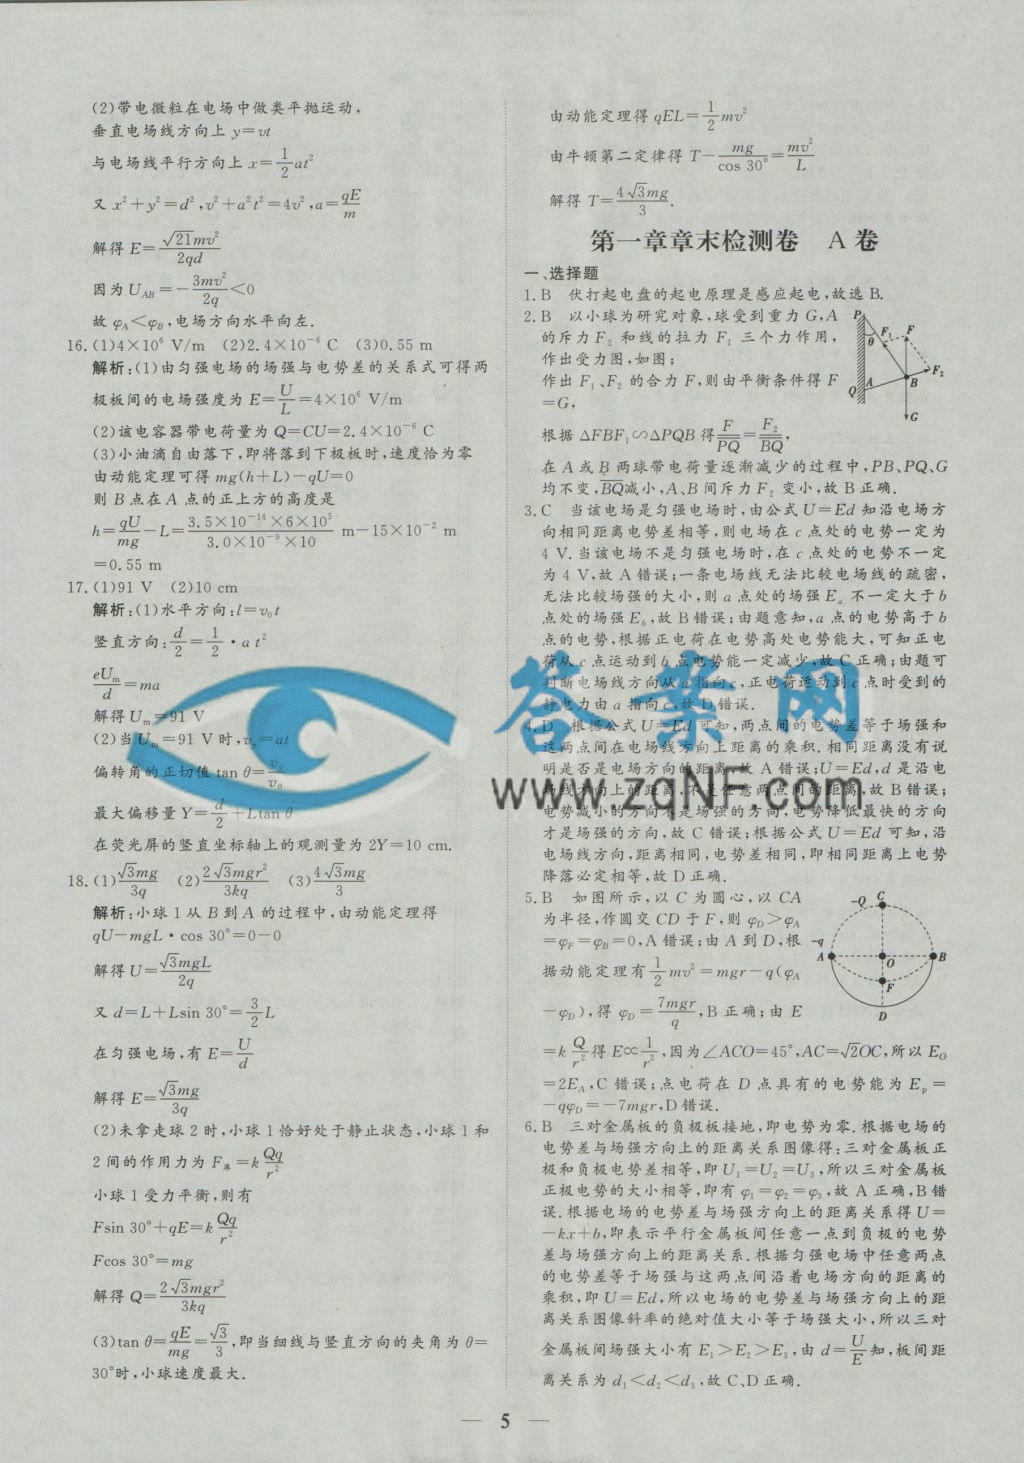 (2)带电微粒在电场中做类平抛运动,
垂直电场线方向上 y=vt
与电场线平行方向上 x=1/2at²
又 x²+y²=d²,v²+a²t²=4v²,a=qE/m
解得 E=√21mv²/2qd
因为 U_AB=-3mv²/2q<0
故 φ_A<φ_B,电场方向水平向左.
16.(1)4×10⁶ V/m (2)2.4×10⁻⁶ C (3)0.55 m
解析:(1)由匀强电场的场强与电势差的关系式可得两
极板间的电场强度为 E=U/L=4×10⁶ V/m
(2)该电容器带电荷量为 Q=CU=2.4×10⁻⁶ C
(3)小油滴自由落下,即将落到下极板时,速度恰为零
由动能定理可得 mg(h+L)-qU=0
则 B 点在 A 点的正上方的高度是
h=qU/mg-L=3.5×10⁻¹⁴×6×10⁵/3.0×10⁻⁹×10 m-15×10⁻² m
=0.55 m
17.(1)91 V (2)10 cm
解析:(1)水平方向:l=v₀t
竖直方向:d/2=1/2·at²
eU_m/d=ma
解得 U_m=91 V
(2)当 U_m=91 V 时,v_y=at
偏转角的正切值 tan θ=v_y/v₀
最大偏移量 Y=d/2+Ltan θ
在荧光屏的竖直坐标轴上的观测量为 2Y=10 cm.
18.(1)√3mg/3q (2)2√3mgr²/3kq (3)4√3mg/3
解析:小球 1 从 B 到 A 的过程中,由动能定理得
qU-mgL·cos 30°=0-0
解得 U=√3mgL/2q
又 d=L+Lsin 30°=3/2L
在匀强电场,有 E=U/d
解得 E=√3mg/3q
(2)未拿走球 2 时,小球 1 恰好处于静止状态,小球 1 和
2 间的作用力为 F库=kQq/r²
小球 1 受力平衡,则有
Fsin 30°+qE=kQq/r²
Fcos 30°=mg
解得 Q=2√3mgr²/3kq
(3)tan θ=qE/mg=√3/3,即当细线与竖直方向的夹角为 θ=
30°时,小球速度最大.
由动能定理得 qEL=1/2mv²
由牛顿第二定律得 T-mg/cos 30°=mv²/L
解得 T=4√3mg/3.
第一章章末检测卷 A 卷
一、选择题
1.B 伏打起电盘的起电原理是感应起电,故选 B.
2.B 以小球为研究对象,球受到重力 G,A
的斥力 F₂ 和线的拉力 F₁ 三个力作用,
作出受力图,如图;
作出 F₁、F₂ 的合力 F,则由平衡条件得 F
=G,
根据 △FBF₁∽△PQB 得F/PQ=F₂/BQ,
在 A 或 B 两球带电荷量逐渐减少的过程中,PB、PQ、G
均不变,BQ减小,A、B 间斥力 F₂ 变小,故 B 正确.
P
F₁
F
θ
F₂
A
B
Q
G
3.C 当该电场是匀强电场时,由公式 U=Ed 知沿电场方
向相同距离电势差相等,则电场在 c 点处的电势一定为
4 V.当该电场不是匀强电场时,在 c 点处的电势不一定
为 4 V,故 A 错误;一条电场线无法比较电场线的疏密,
无法比较场强的大小,则 a 点处的场强 E_a 不一定大于 b
点处的场强 E_b,故 B 错误;由题意知,a 点的电势高于 b
点的电势,根据正电荷在电势高处电势能大,可知正电
荷从 c 点运动到 b 点电势能一定减少,故 C 正确;由题可
判断电场线方向从 a 指向 c,正电荷运动到 c 点时受到的
静电力由 a 指向 c,故 D 错误.
4.D 根据公式 U=Ed 可知,两点间的电势差等于场强和
这两点间在电场线方向上距离的乘积.相同距离没有说
明是否是电场方向的距离,故 A 错误;U=Ed,d 是沿电
场线方向上的距离,不是任意两点间的距离,故 B 错误;
电势减小的方向不是场强的方向,电势降低最快的方向
才是场强的方向,故 C 错误;根据公式 U=Ed 可知,沿
电场线方向,距离相同,电势差相同,即相同距离上电势
降落必定相等,故 D 正确.
5.B 如图所示,以 C 为圆心,以 CA
为半径,作圆交 CD 于 F,则 φ_D>φ_A
=φ_F=φ_B=0,A 错误;由 A 到 D,根
据动能定理有1/2mv²=mgr-q(φ_A
-φ_D),得 φ_D=7mgr/q,B 正确;由 E
=kQ/r²得 E∝1/r²,因为∠ACO=45°,AC=√2OC,所以 E_O
=2E_A,C 错误;点电荷在 D 点具有的电势能为 E_p=
-qφ_D=-7mgr,D 错误.
-Q C
-q
A
O
B
F
D
6.B 三对金属板的负极板接地,即电势为零.根据电场的
电势差与场强方向上的距离关系图像得:三对金属板正
极和负极电势差相等,即 U₁=U₂=U₃,所以三对金属板
正极电势的大小相等,即有 φ₁=φ₂=φ₃,故 A 正确,B 错
误.根据电场的电势差与场强方向上的距离关系得 U=
-kx+b,即表示平行金属板间任意一点到负极的电势
差与场强方向上的距离关系.根据匀强电场中任意两点
的电势差等于场强与这两点间沿着电场方向的距离的
乘积,即 U=Ed,所以电场的电势差与场强方向上的距
离关系图像斜率的绝对值大小等于场强大小,所以三对
金属板间场强大小有 E₁>E₂>E₃,由 d=U/E知,板间距
离关系为 d₁<d₂<d₃,故 C、D 正确.
答案网
www.zqNF.com
5